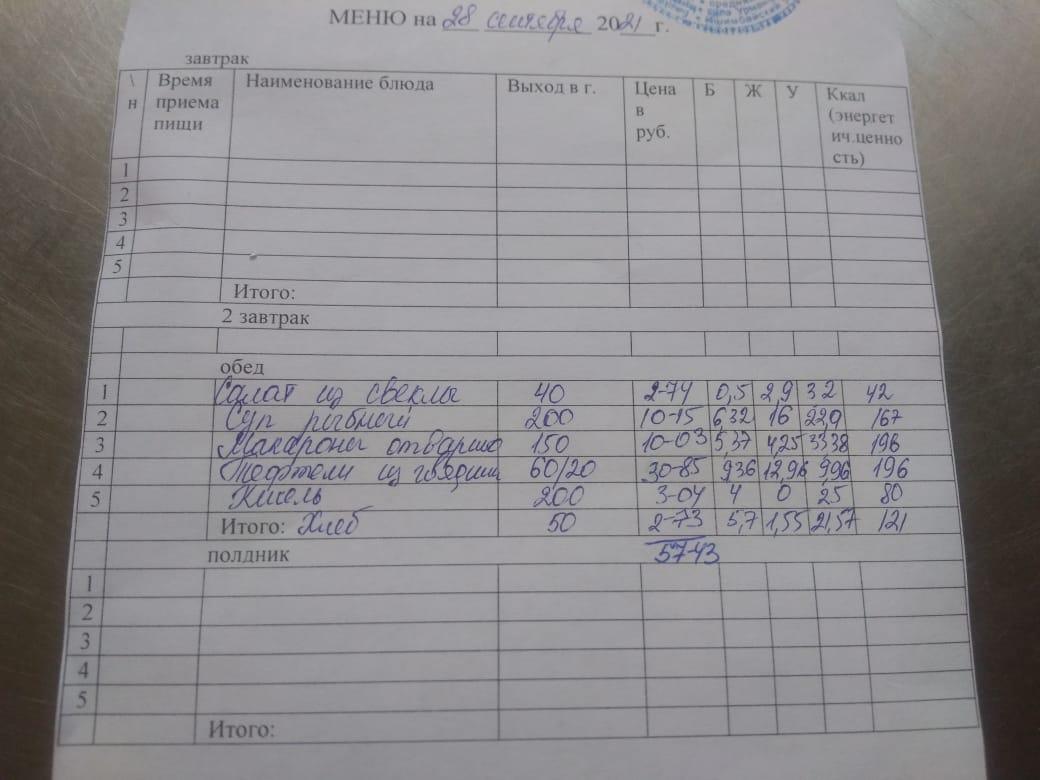 МЕНЮ на 28 сентября 2021 г.
завтрак
\ н Время приема пищи Наименование блюда Выход в г. Цена в руб. Б Ж У Ккал (энергет ич.ценно сть)
1
2
3
4
5
Итого:
2 завтрак
обед
1 Салат из свеклы 40 2-74 0,5 2,9 3,2 42
2 Суп рыбный 200 10-15 6,32 16 22,9 167
3 Макароны отварные 150 10-03 5,37 4,25 33,38 196
4 Тефтели из говядины 60/20 30-85 9,36 12,96 9,96 196
5 Кисель 200 3-04 4 0 25 80
Итого: Хлеб 50 2-73 5,7 1,55 21,57 121
полдник 57-43
1
2
3
4
5
Итого: